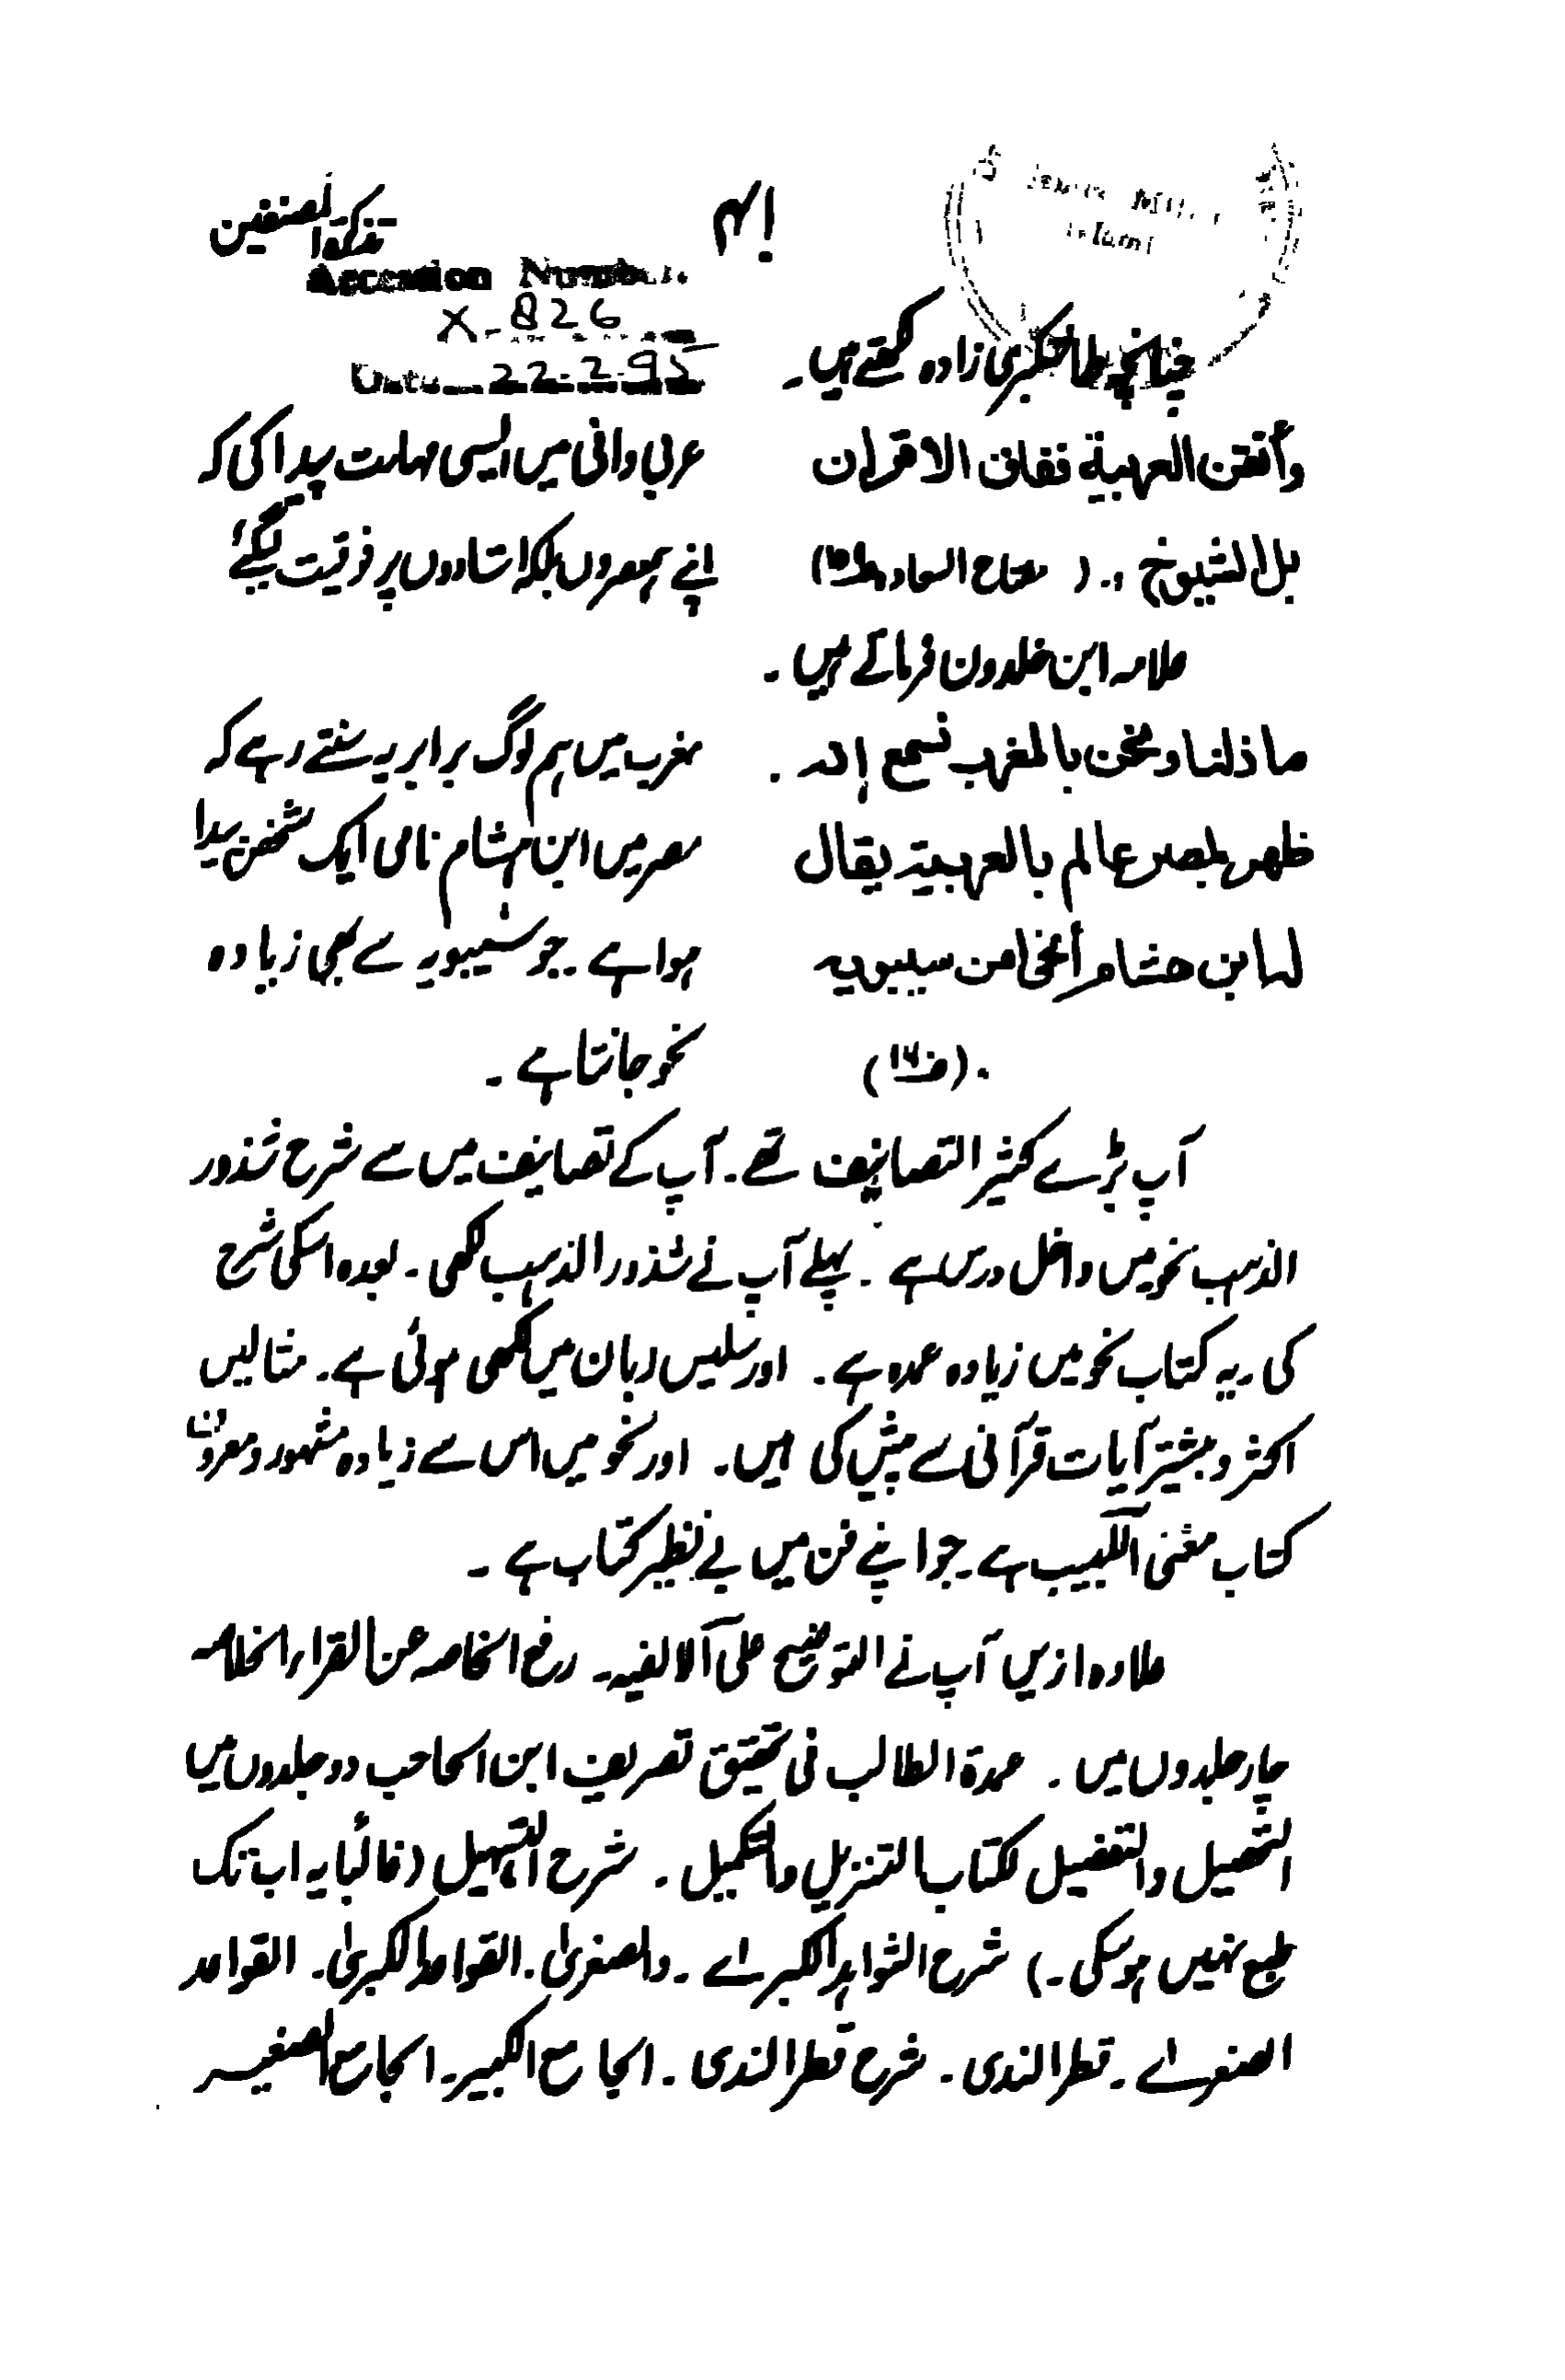 تذکرۃ المصنفین
۴۱
Accession Number
X-826
Date 22-2-95
Millia
Islami
چنانچہ طاشکبری زادہ لکھتے ہیں۔
وأتقن العربية ففاق الاقران
عربی دانی میں ایسی مہارت پیدا کی کہ
بل الشیوخ ۔۔ ( مفتاح السعادہ
اپنے ہمعصروں بلکہ استادوں پر فوقیت لیگئے
علامہ ابن خلدون فرماتے ہیں ۔
ما ذلنا ونحن بالمغرب نسمع إنه .
مغرب میں ہم لوگ برابر یہ سنتے رہے کہ
ظهر بمصر عالم بالعربية يقال
مصر میں ابن ہشام نامی ایک شخص پیدا
له ابن هشام أنحى من سيبويه
ہوا ہے ۔ جو سیبویہ سے بھی زیادہ
نحو جانتا ہے ۔
آپ بڑے کثیر التصانیف تھے ۔ آپ کے تصانیف میں سے شرح شذور
الذہب نحو میں داخل درس ہے ۔ پہلے آپ نے شذور الذہب لکھی ۔ بعدہ اسکی شرح
کی ۔ یہ کتاب نحو میں زیادہ عمدہ ہے ۔ اور سلیس زبان میں لکھی ہوئی ہے ۔ مثالیں
اکثر و بیشتر آیات قرآنی سے پیش کی ہیں ۔ اور نحو میں اس سے زیادہ مشہور و معروف
کتاب مغنی اللبیب ہے ۔ جو اپنے فن میں بے نظیر کتاب ہے ۔
علاوہ ازیں آپ نے التوضیح علی الالفیہ ۔ رفع الخاصہ عن القراء الخلاصہ
چار جلدوں میں ۔ عمدۃ الطالب فی تحقیق تصریف ابن الحاجب دو جلدوں میں
التحصیل والتفضیل لکتاب التنزیل والتکمیل ۔ شرح التسہیل (غالباً یہ اب تک
طبع نہیں ہو سکی ۔) شرح الشواہد الکبرے ۔ والصغریٰ ۔ القواعد الکبریٰ ۔ القواعد
الصغرے ۔ قطر الندی ۔ شرح قطر الندی ۔ الجامع الکبیر ۔ الجامع الصغیر